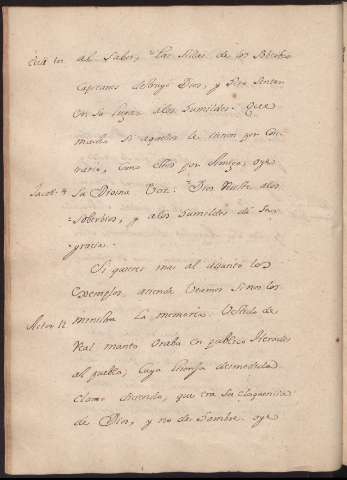 al Saber, Las Sillas de los Soberbios
Capitanes destruyó Dios, y hizo Sentar
en Su lugar a los humildes. Que
mucho si aquellos le tienen por Con-
trario, Como estos por Amigo, oye
Jacob. 4 Su Divina Voz: Dios Resiste a los
Soberbios, y a los humildes da Su
gracia.
Si quieres mas al
Exemplos, atiende Veamos Si nos los
Actor. 12 ministra La memoria. Vestido de
Real manto Oraba en publico Herodes
al pueblo, Cuya lisonja desmedida
Clamó diciendo, que era Su eloquencia
de Dios, y no de hombre. oye